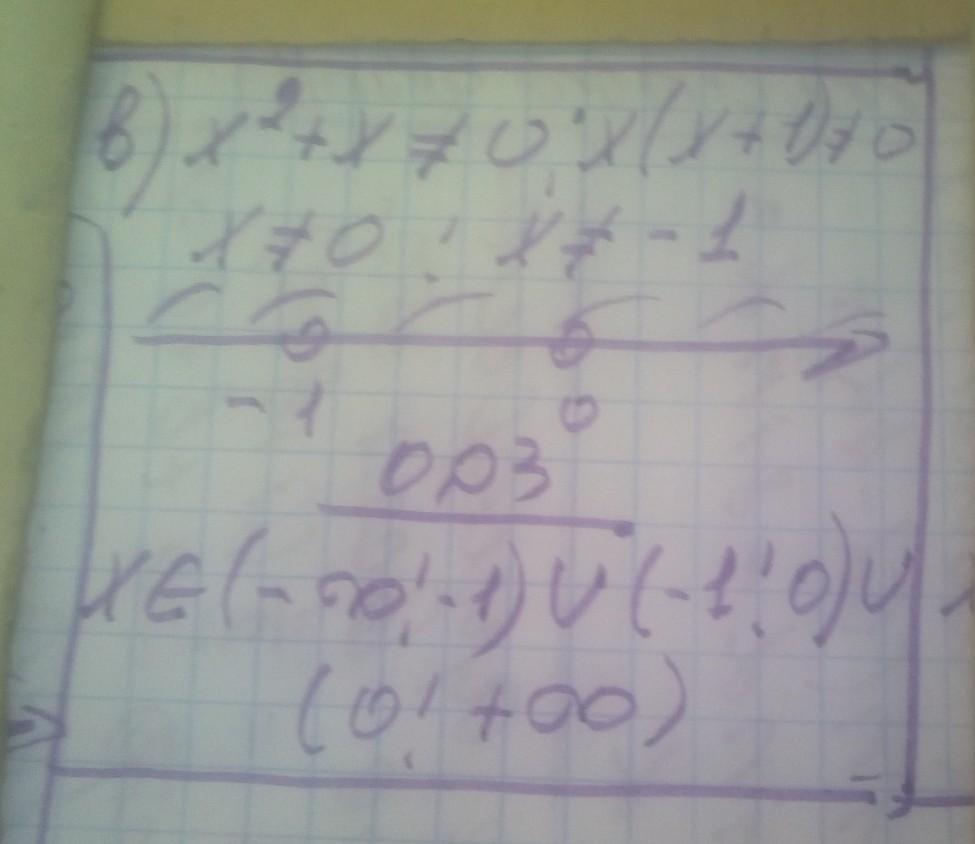 в) x²+x≠0; x(x+1)≠0
x≠0; x≠-1
-1 0
ОДЗ
x∈(-∞;-1)∪(-1;0)∪
(0;+∞)